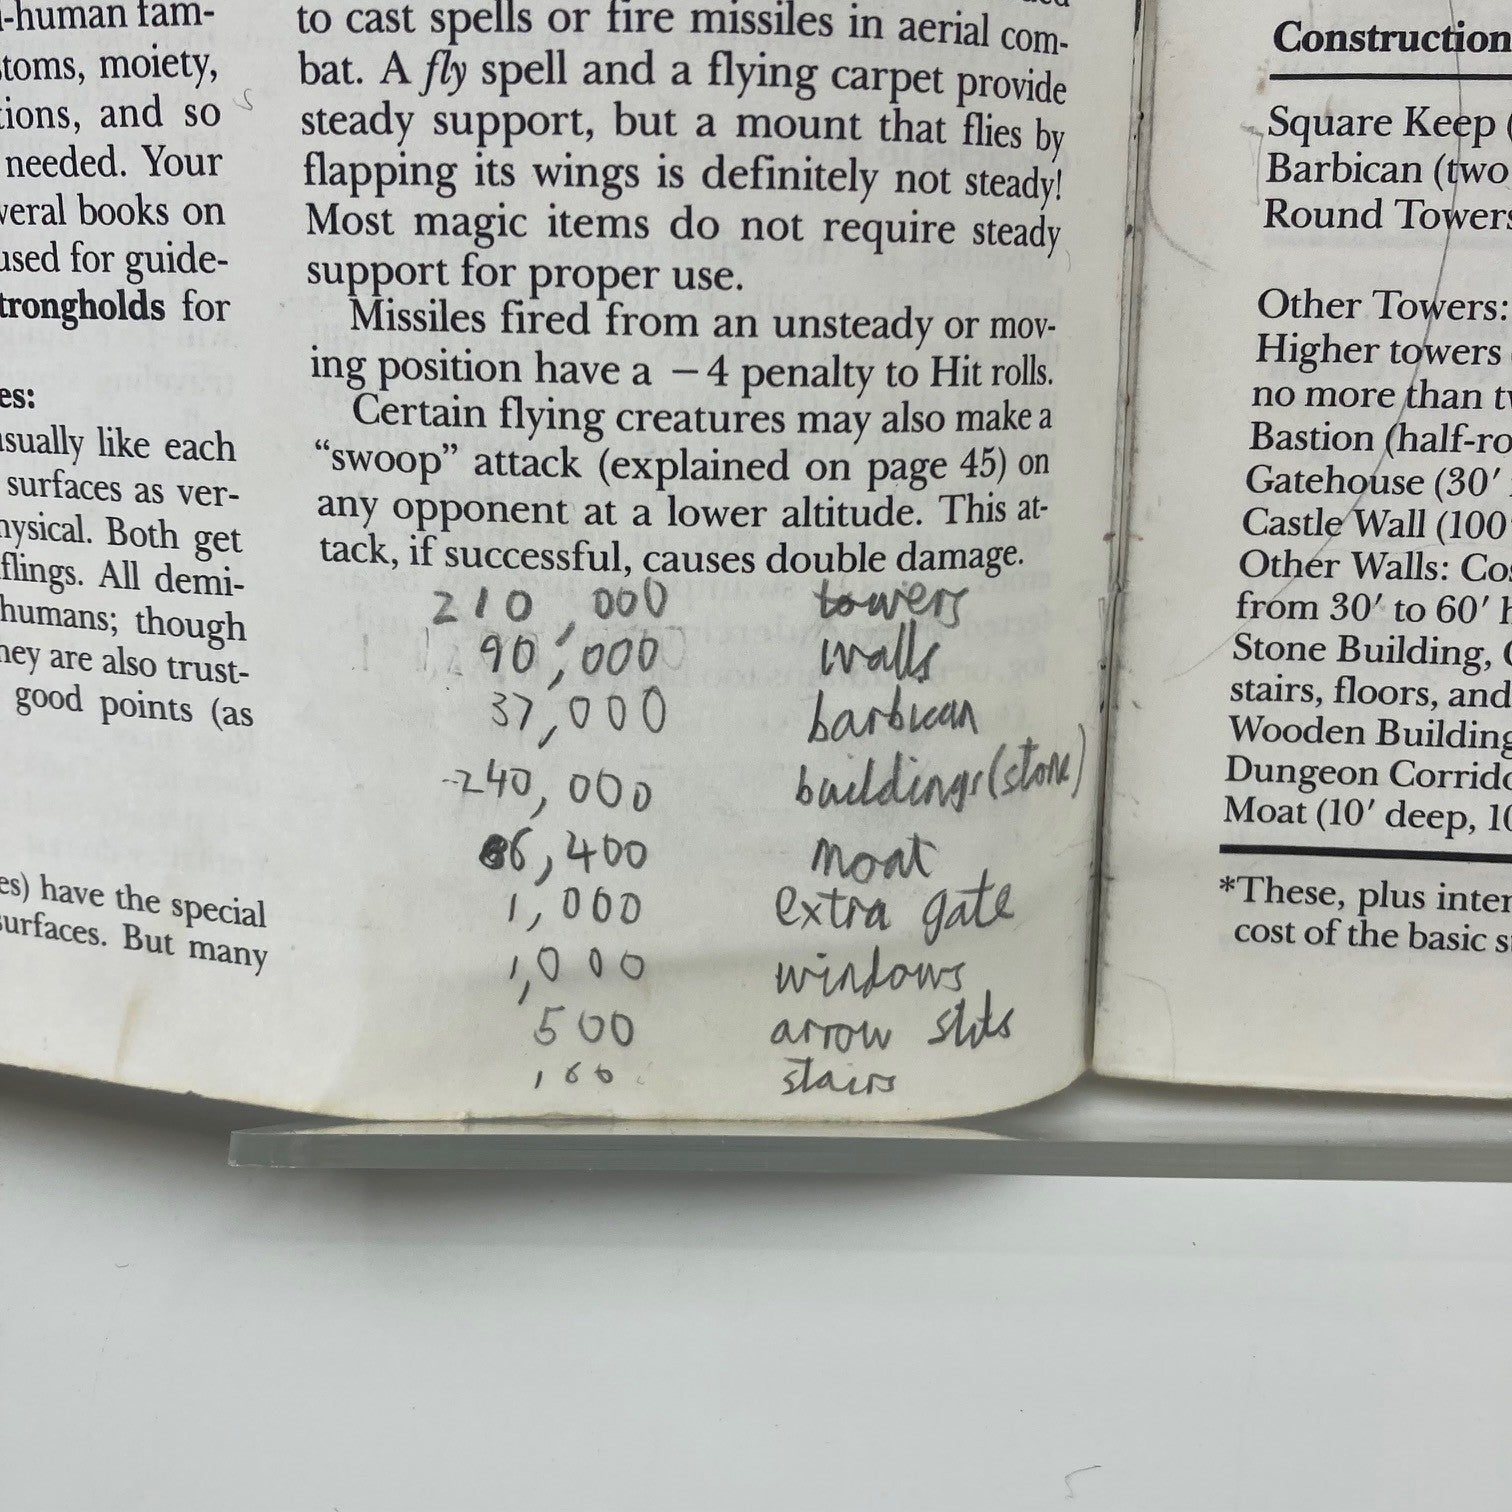 -human fam-
toms, moiety,
tions, and so
needed. Your
veral books on
used for guide-
trongholds for
es:
usually like each
surfaces as ver-
hysical. Both get
flings. All demi-
humans; though
hey are also trust-
good points (as
es) have the special
surfaces. But many
to cast spells or fire missiles in aerial com-
bat. A fly spell and a flying carpet provide
steady support, but a mount that flies by
flapping its wings is definitely not steady!
Most magic items do not require steady
support for proper use.
Missiles fired from an unsteady or mov-
ing position have a −4 penalty to Hit rolls.
Certain flying creatures may also make a
“swoop” attack (explained on page 45) on
any opponent at a lower altitude. This at-
tack, if successful, causes double damage.
210,000 towers
90,000 walls
37,000 barbican
240,000 buildings (stone)
6,400 moat
1,000 extra gate
1,000 windows
500 arrow slits
stairs
Construction
Square Keep (
Barbican (two
Round Towers
Other Towers:
Higher towers
no more than tw
Bastion (half-ro
Gatehouse (30′
Castle Wall (100
Other Walls: Cos
from 30′ to 60′ h
Stone Building, C
stairs, floors, and
Wooden Building
Dungeon Corrido
Moat (10′ deep, 10
*These, plus inter
cost of the basic s